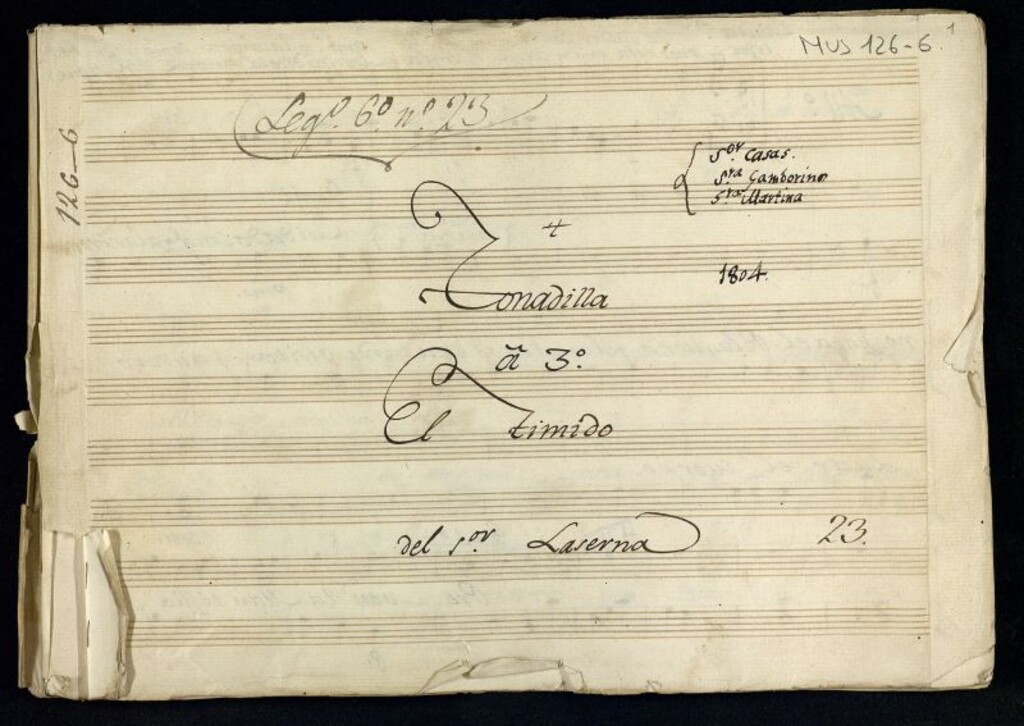 MUS 126-6. 1
Legº. 6º. nº. 23
126-6
Sor. Casas.
Sra. Gamborino
Sra. Martina
+
Tonadilla
1804.
â 3º.
El timido
del Sor. Laserna
23.